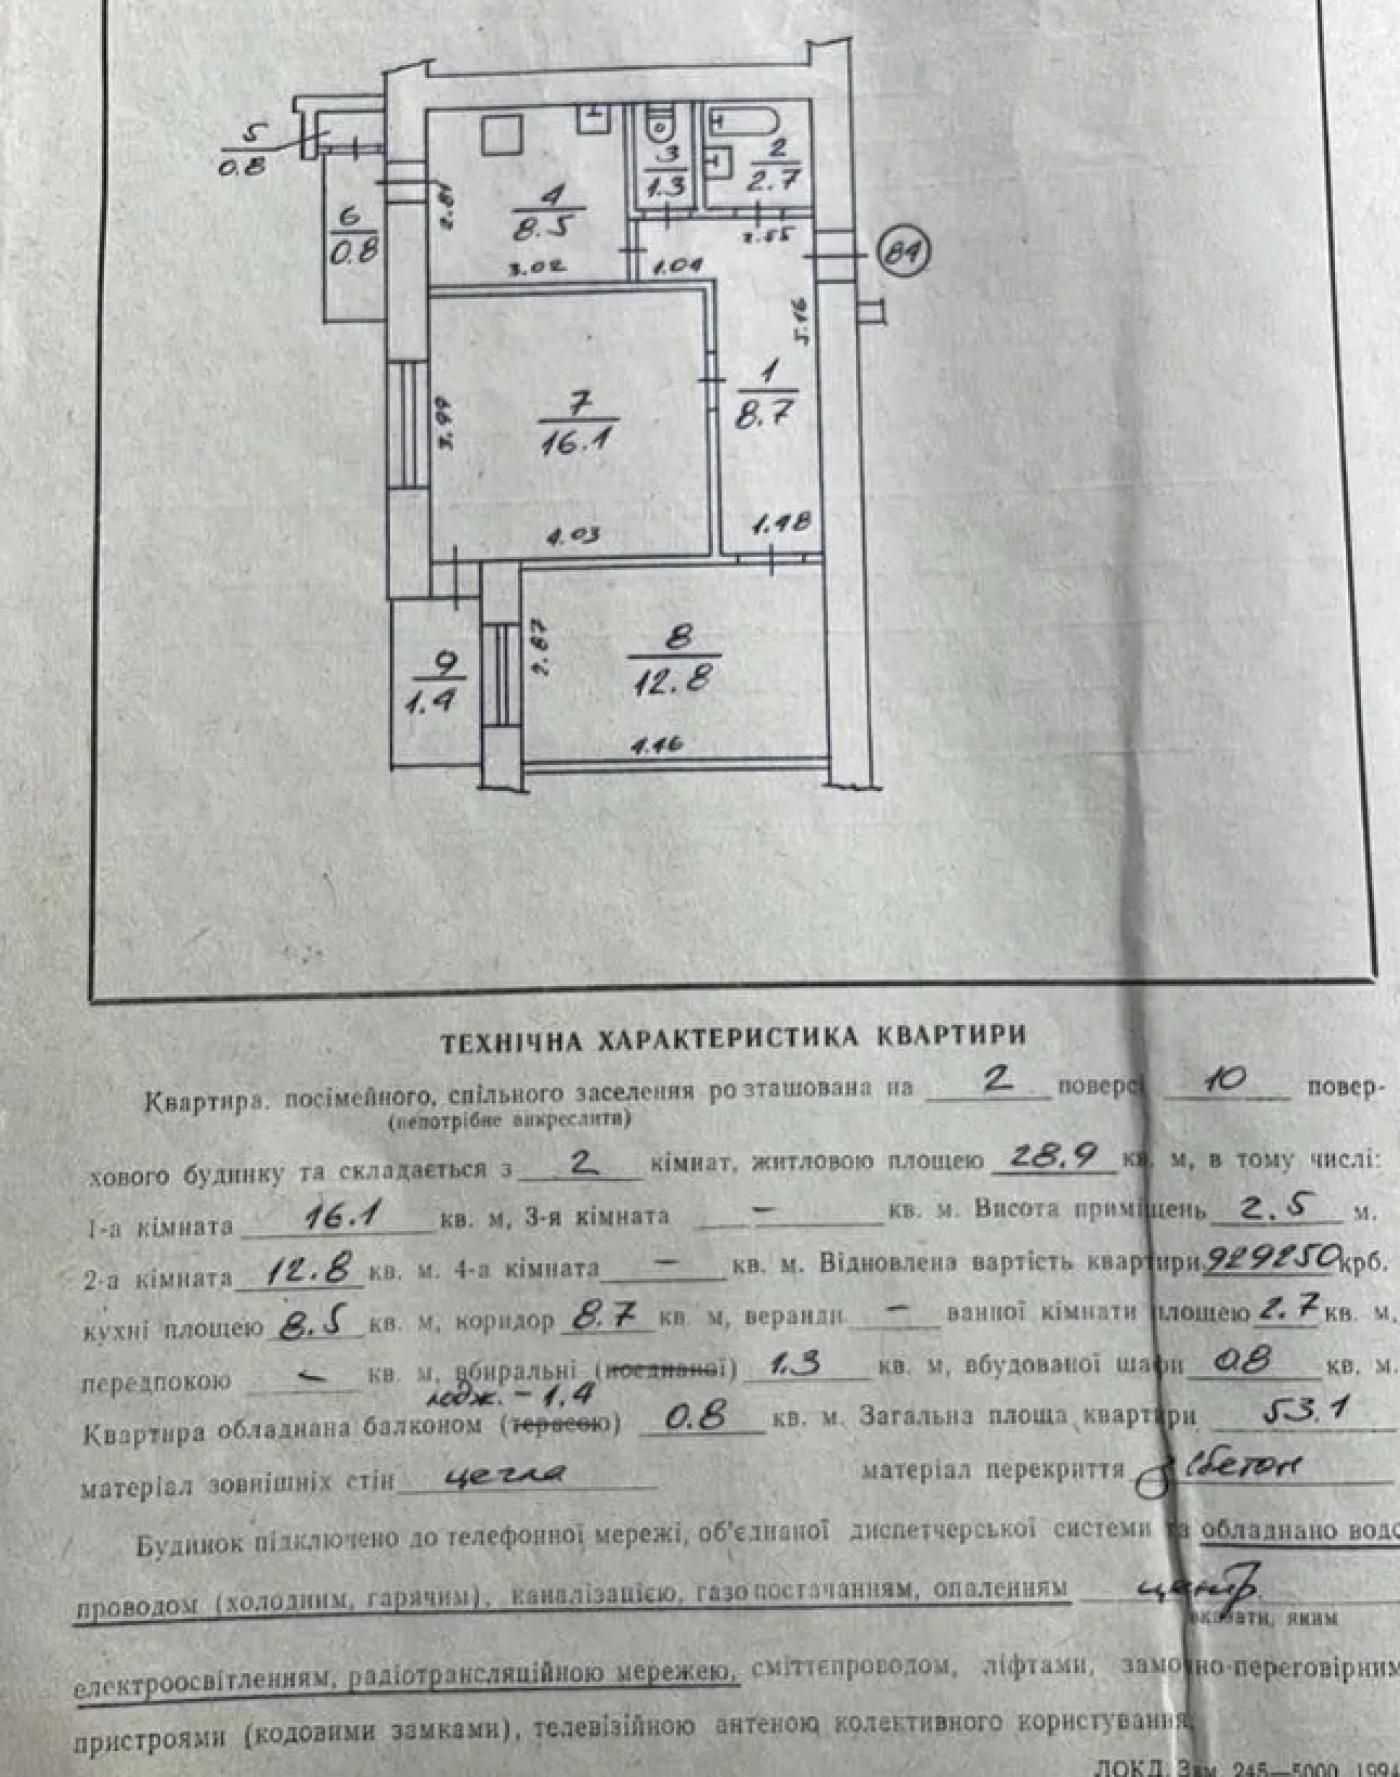 5
0.8
6
0.8
2.81
4
8.5
3.02
3
1.3
2
2.7
2.55
1.04
84
5.16
1
8.7
7
16.1
3.99
4.03
1.48
8
12.8
2.87
4.46
9
1.4
ТЕХНІЧНА ХАРАКТЕРИСТИКА КВАРТИРИ
Квартира. посімейного, спільного заселення розташована на 2 поверсі 10 повер-
(непотрібне викреслити)
хового будинку та складається з 2 кімнат, житловою площею 28.9 кв. м, в тому числі:
1-а кімната 16.1 кв. м, 3-я кімната – кв. м. Висота приміщень 2.5 м.
2-а кімната 12.8 кв. м. 4-а кімната – кв. м. Відновлена вартість квартири 929250 крб.
кухні площею 8.5 кв. м, коридор 8.7 кв. м, веранди – ванної кімнати площею 2.7 кв. м,
передпокою – кв. м, вбиральні (поєднаної) 1.3 кв. м, вбудованої шафи 0.8 кв. м.
лодж. – 1.4
Квартира обладнана балконом (терасою) 0.8 кв. м. Загальна площа квартири 53.1
матеріал зовнішніх стін цегла матеріал перекриття з/бетон
Будинок підключено до телефонної мережі, об'єднаної диспетчерської системи та обладнано водо
проводом (холодним, гарячим), каналізацією, газопостачанням, опаленням центр.
вказати, яким
електроосвітленням, радіотрансляційною мережею, сміттєпроводом, ліфтами, замочно-переговірним
пристроями (кодовими замками), телевізійною антеною колективного користування.
ЛОКД. Зам. 245—5000 199